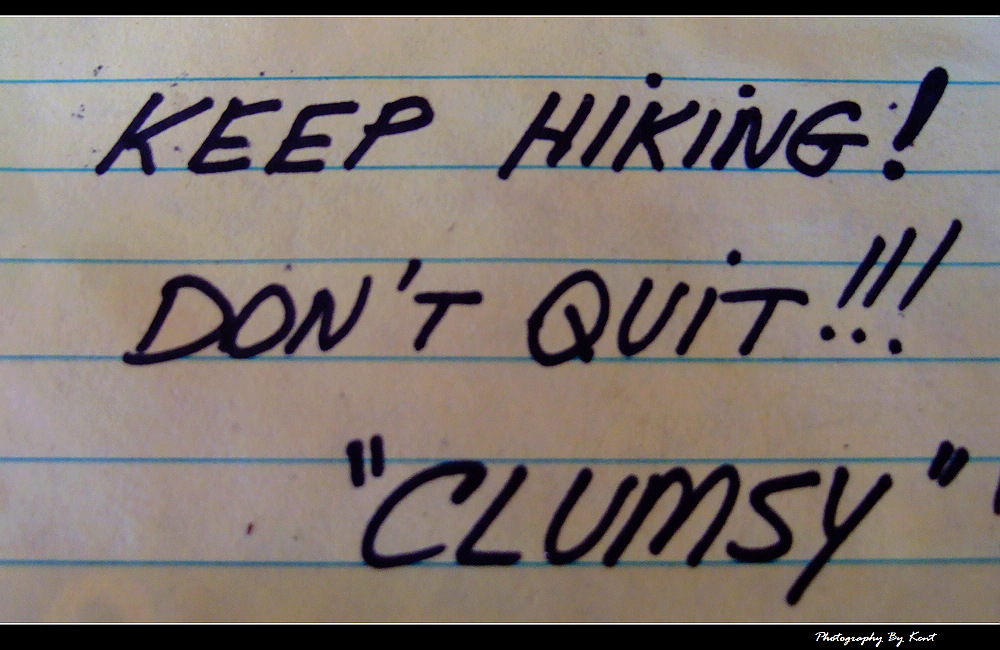 KEEP HIKING!
DON'T QUIT!!!
"CLUMSY"
Photography By Kent